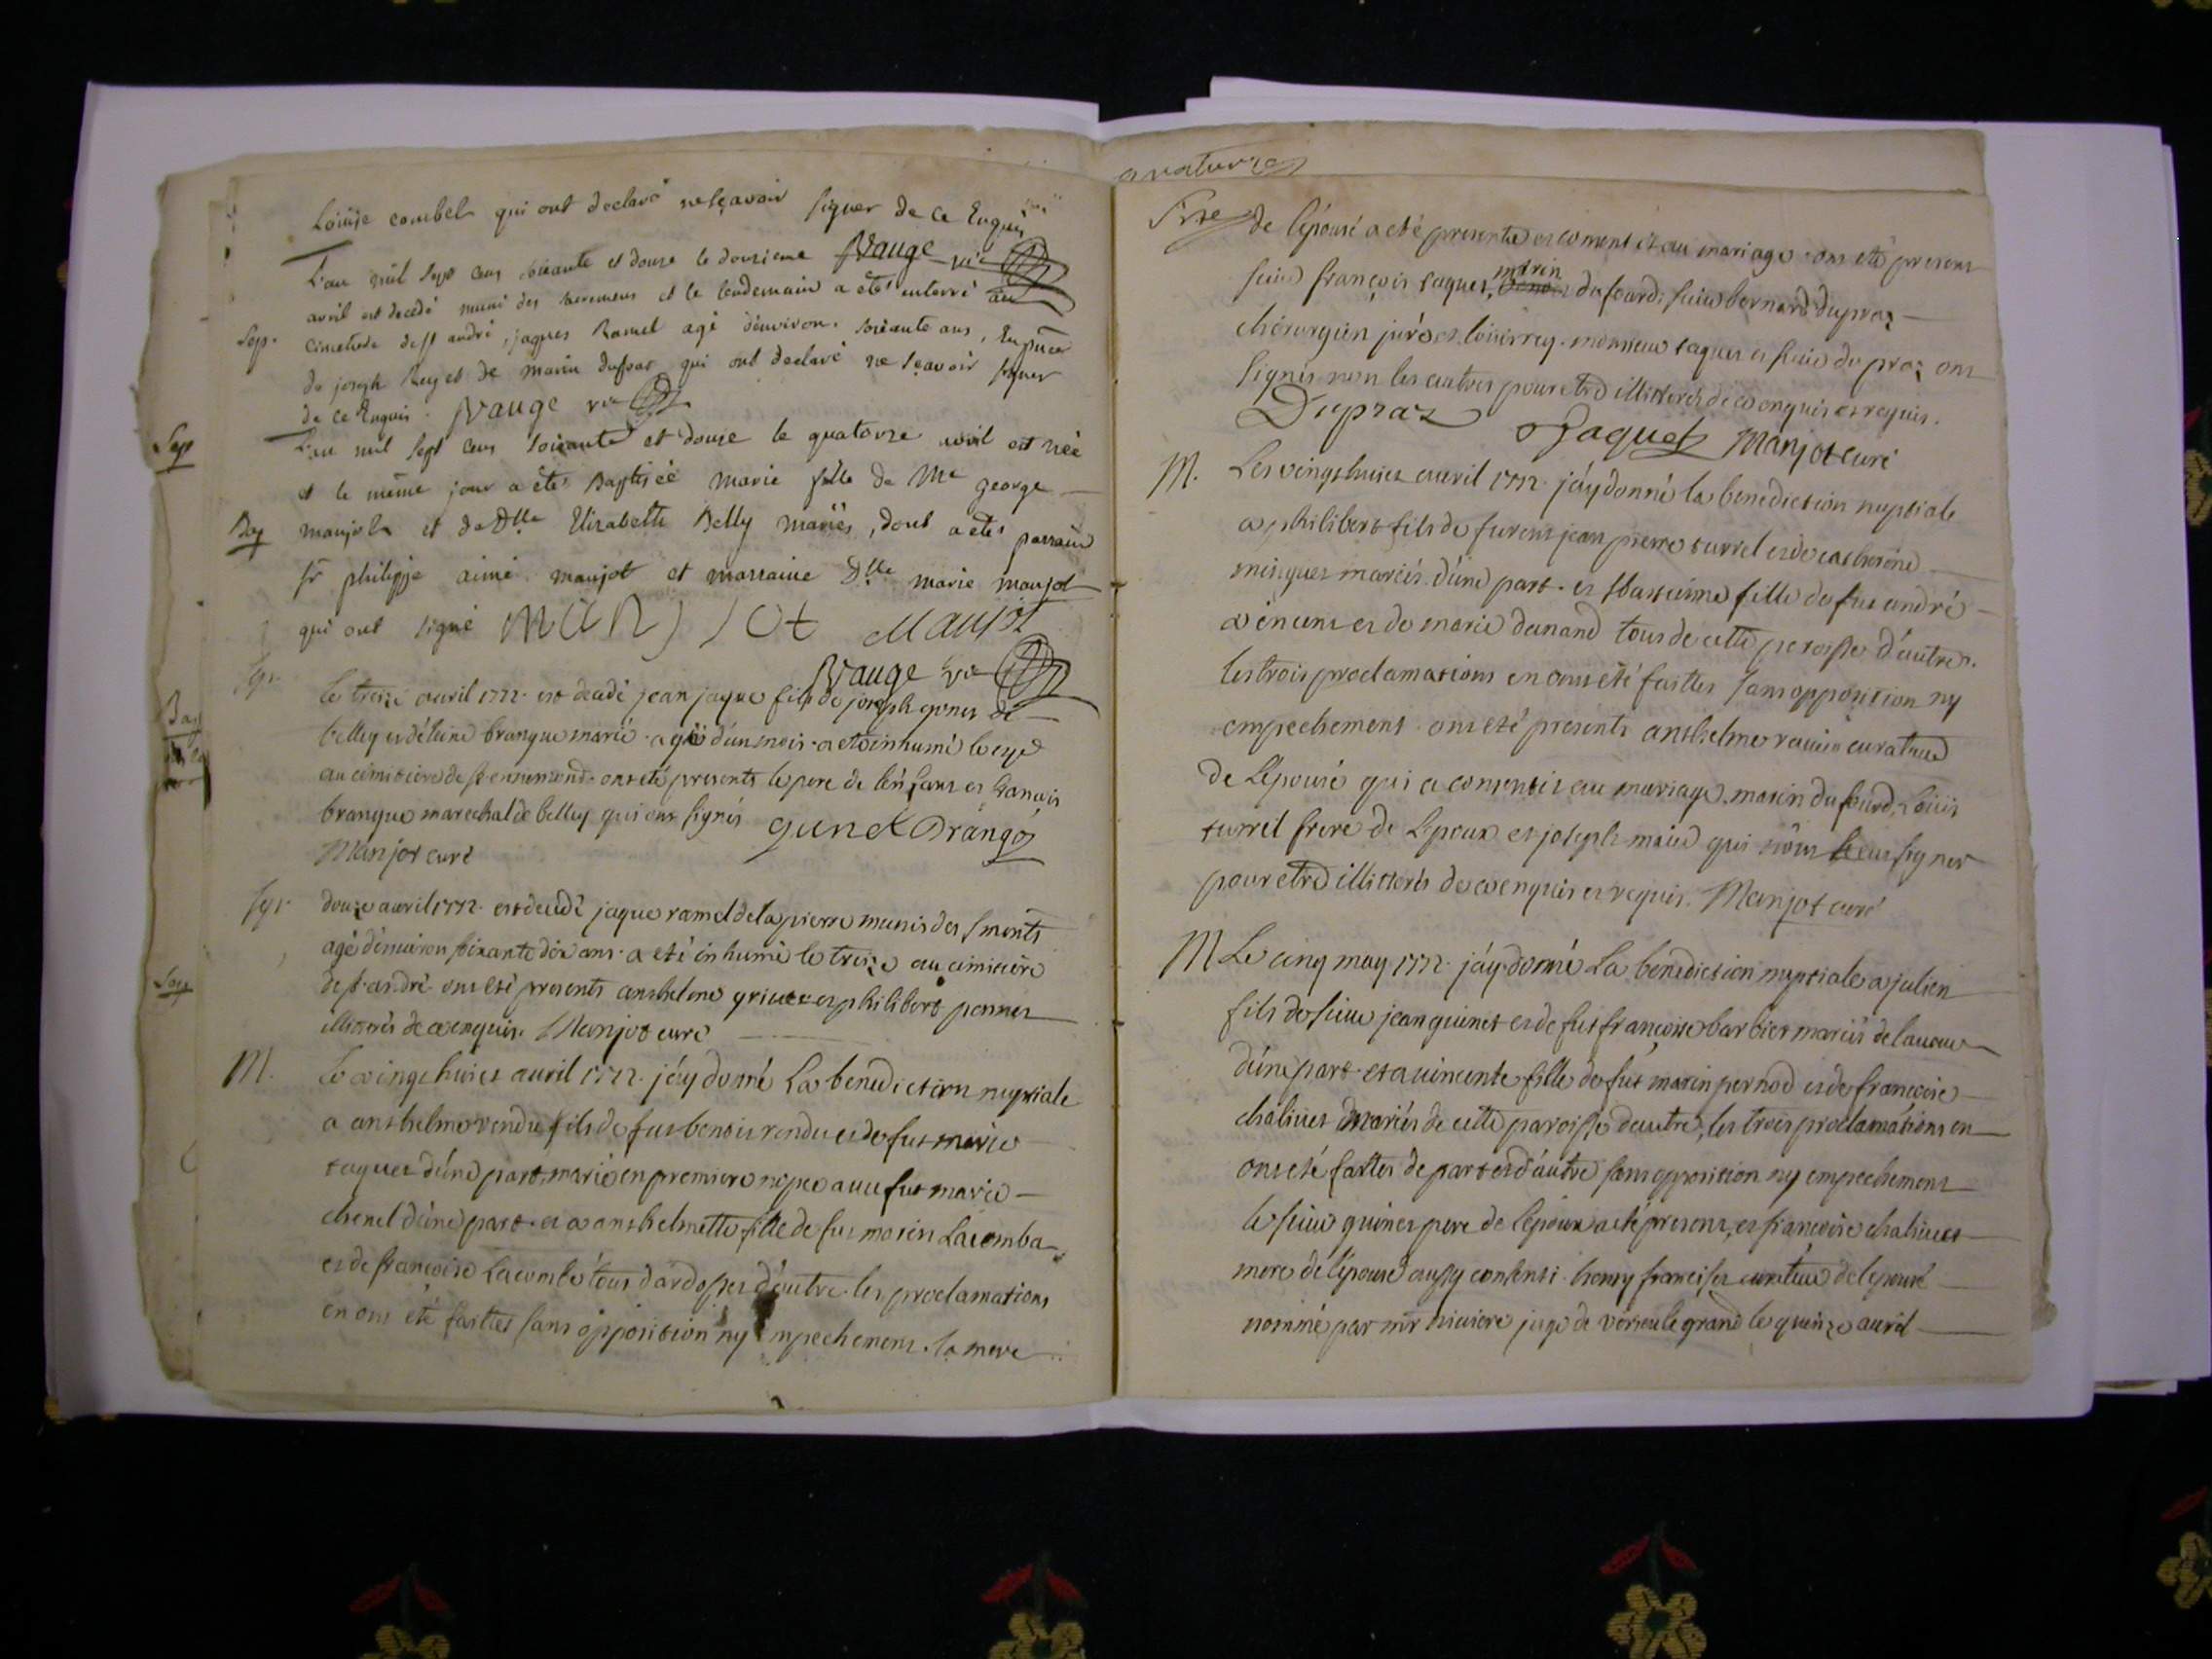 Loüise combet qui ont declaré ne sçavoir signer de ce Enquis
L'an mil sept cens soixante et douze le douzieme Vauge vic
avril est decedé muni des sacremens et le lendemain a étés enterré au
Sep. cimetiere de st andré, jaques Ramel agé d'environ soixante ans, En pnce
de joseph Rey et de marin dufour qui ont declaré ne sçavoir signer
de ce Enquis. Vauge vic
Sep
L'an mil sept cens soixante et douze le quatorze avril est née
et le même jour a étés Baptisée marie fille de Me george
Bap manjot et de Dlle Elizabette Belly mariés, dont a étés parrain
sr philippe aimé manjot et marraine Dlle marie manjot
qui ont signé manjot Manjot
Vauge vic
Sep. le treize avril 1772. est decedé jean jaque fils de joseph gonet de
Bap
belley et d'étiene brangue mariés. agé d'un mois. a eté inhumé le
au cimitiere de st . ont eté presents le pere de l'enfant et françois
brangue marechal de belley qui ont signés gunet Drango
Manjot curé
Sep. douze avril 1772. est decedé jaque ramel de la pierre munis des sments
agé d'environ soixante dix ans. a eté inhumé le treize au cimitiere
Sep
de st. andré. ont eté presents anthelme et philibert pernet
illitterés de ce enquis. Manjot curé
M. Le vingt huict avril 1772. j'ay donné La benediction nuptiale
a anthelme rendu fils de fut benoit rendu et de fut marie
taquet d'une part, marié en premiere nopce avec fut marie
chenel d'une part. et a anthelmette fille de fut marin Lacomba
et de françoise Lacombe tous d'ardosset d'autre. les proclamations
en ont été faittes sans opposition ny empechement. la mere
curateur
Srre de l'épousé a eté presente et coment it au mariage. ont eté presens
sieur françois taquet, marin dufourd, sieur bernard dupraz
chirurgien juré et loüis rey. monsieur taquet et sieur dupraz ont
signés non les autres pour etre illitterés de ce enquis et requis.
Dupraz Jaquet Manjot curé
M. Les vingt huict avril 1772. j'ay donné la benediction nuptiale
a philibert fils de furent jean pierre turrel et de catherine
minguet mariés d'une part. et st fille de fut andré
vincent et de marie dunand tous de cette paroisse d'autre.
les trois proclamations en ont eté faittes sans opposition ny
empechement. ont eté presents anthelme ravier curateur
de L'épousé qui a consentis au mariage, marin dufourd, Loüis
turrel frere de L'epoux et joseph maur qui n'ont sceu signer
pour etre illitterés de ce enquis et requis. Manjot curé
M Le cinq may 1772. j'ay donné La benediction nuptiale a julien
fils de sieur jean guinet et de fut françoise barbier mariés de lavour
d'une part. et a vincente fille de fut marin pernod et de françoise
chalivet mariés de cette paroisse d'autre, les trois proclamations en
ont eté faittes de part et d'autre sans opposition ny empechement
le sieur guinet pere de l'epoux a eté present, et françoise chalivet
mere de l'épouse aussy consenti. henry franciset curateur de l'épousé
nommé par mr riviere juge de virieu le grand le quinze avril